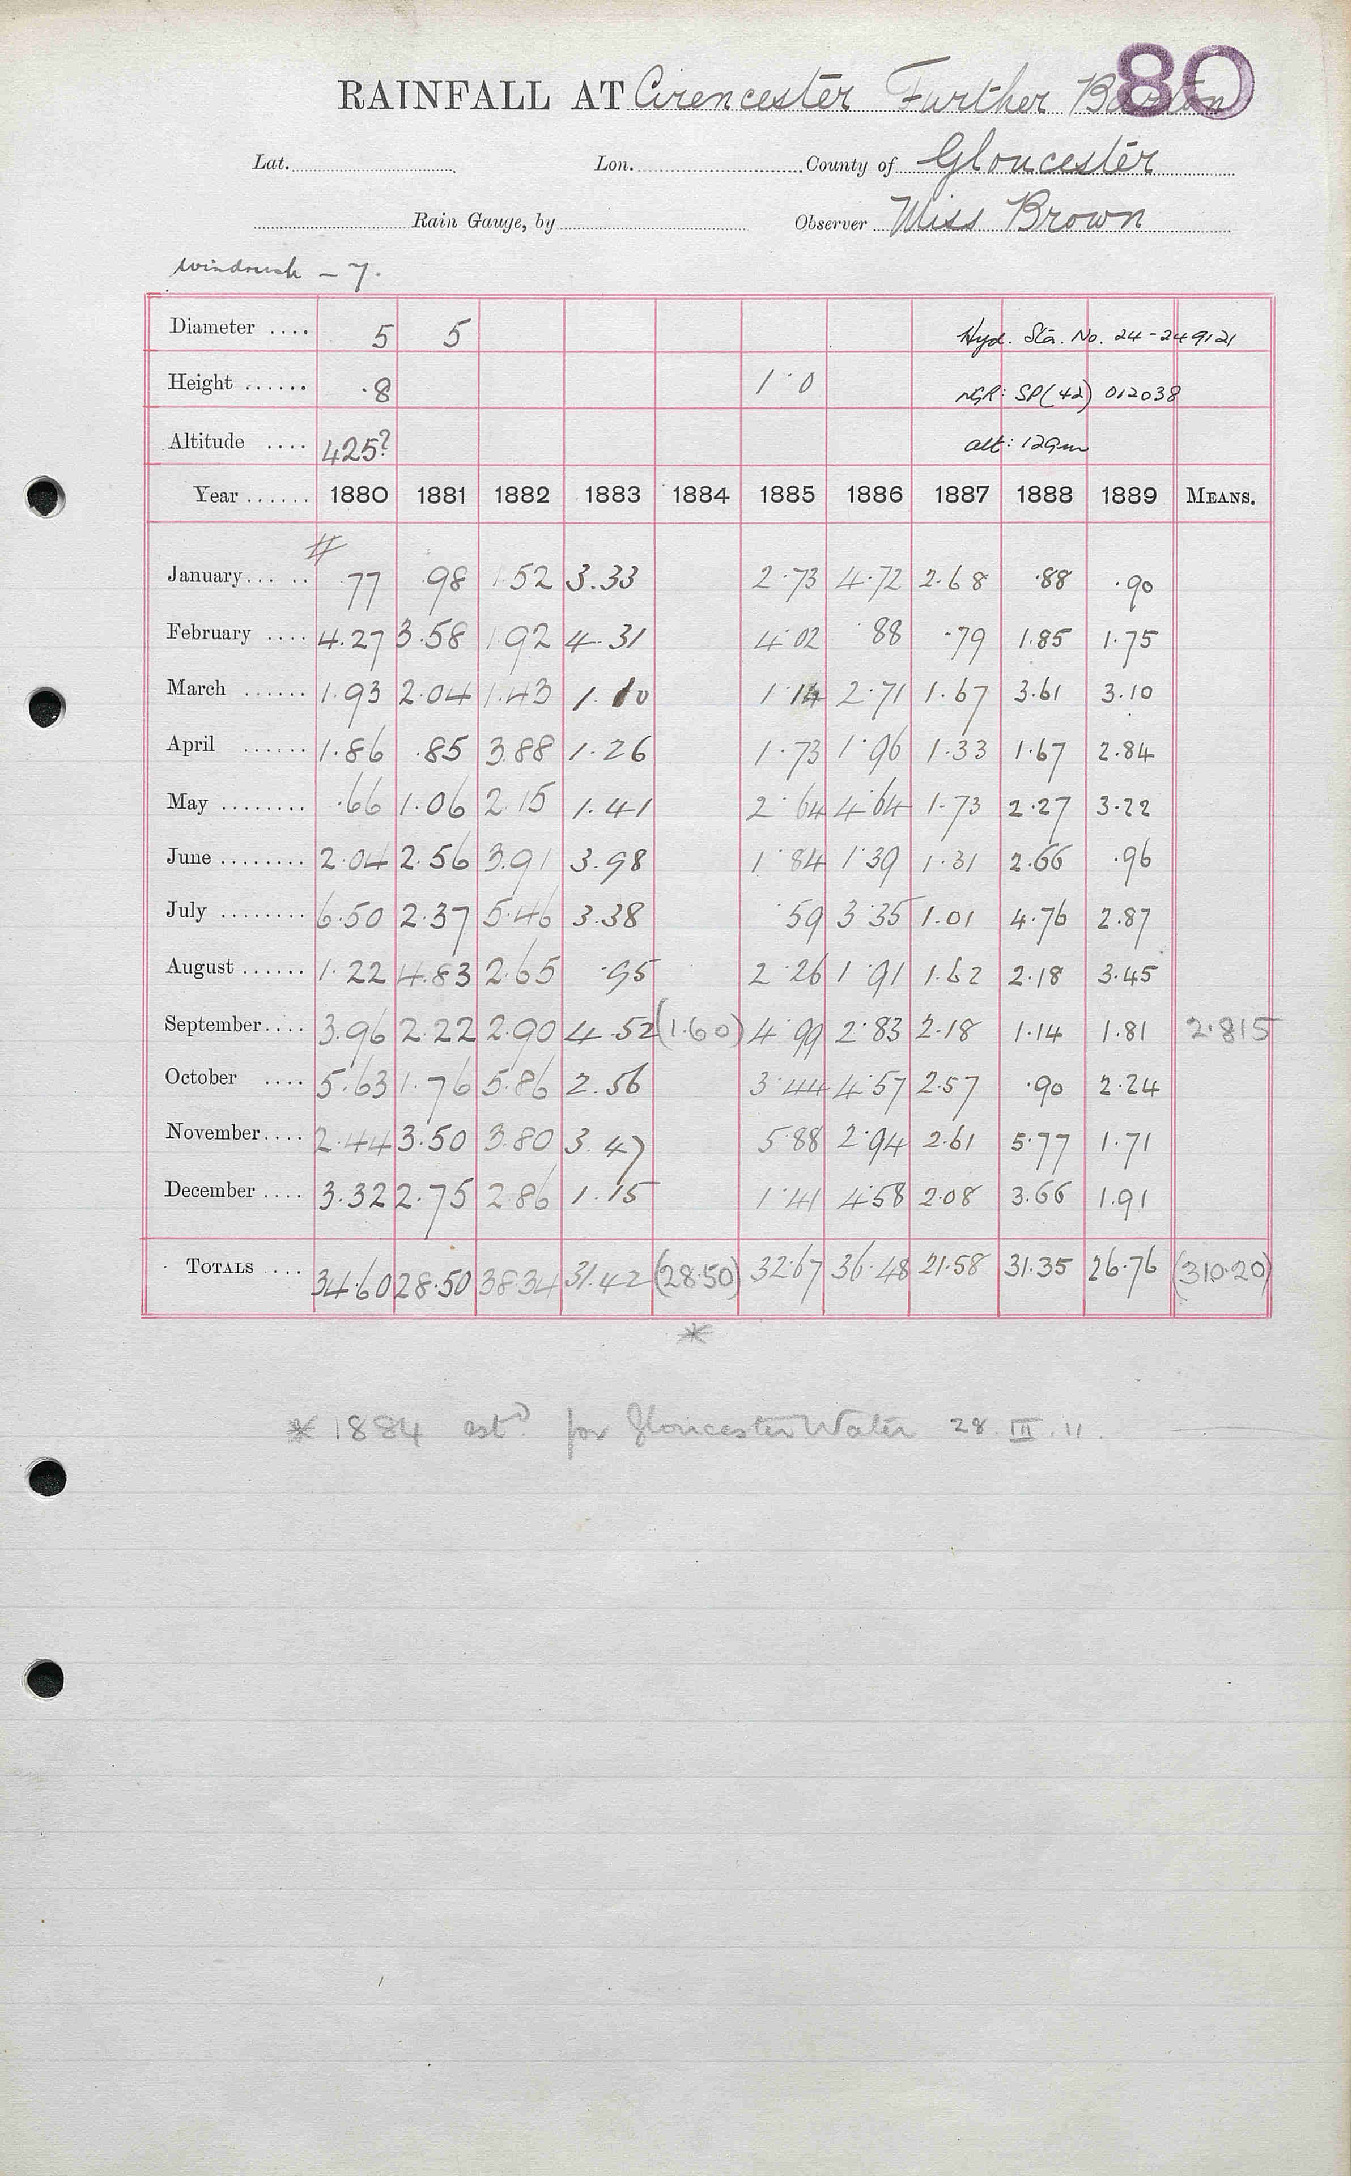 80
RAINFALL AT Cirencester Further Barton
Lat. Lon. County of Gloucester
Rain Gauge, by Observer Miss Brown
Windrush - 7.
Diameter .... 5 5 Hyd. Sta. No. 24-249121
Height ...... .8 1.0 NGR: SP(42) 012038
Altitude .... 425? alt: 129m
Year ...... 1880 1881 1882 1883 1884 1885 1886 1887 1888 1889 MEANS.
#
January... .. .77 .98 1.52 3.33 2.73 4.72 2.68 .88 .90
February .... 4.27 3.58 1.92 4.31 4.02 .88 .79 1.85 1.75
March ...... 1.93 2.04 1.43 1.10 1.14 2.71 1.67 3.61 3.10
April ...... 1.86 .85 3.88 1.26 1.73 1.96 1.33 1.67 2.84
May ........ .66 1.06 2.15 1.41 2.64 4.64 1.73 2.27 3.22
June ........ 2.04 2.56 3.91 3.98 1.84 1.39 1.31 2.66 .96
July ........ 6.50 2.37 5.46 3.38 .59 3.35 1.01 4.76 2.87
August ...... 1.22 4.83 2.65 .95 2.26 1.91 1.62 2.18 3.45
September.... 3.96 2.22 2.90 4.52 (1.60) 4.99 2.83 2.18 1.14 1.81 2.815
October .... 5.63 1.76 5.86 2.56 3.44 4.57 2.57 .90 2.24
November.... 2.44 3.50 3.80 3.47 5.88 2.94 2.61 5.77 1.71
December .... 3.32 2.75 2.86 1.15 1.41 4.58 2.08 3.66 1.91
TOTALS .... 34.60 28.50 38.34 31.42 (28.50) 32.67 36.48 21.58 31.35 26.76 (310.20)
*
* 1884 estd. for Gloucester Water 28.III.11.